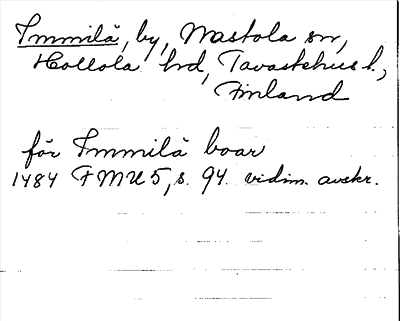 Immilä, by, Nastola sn,
Hollola hrd, Tavastehus l.,
Finland
för Immilä boar
1484 FMU 5, s. 94. vidim. avskr.